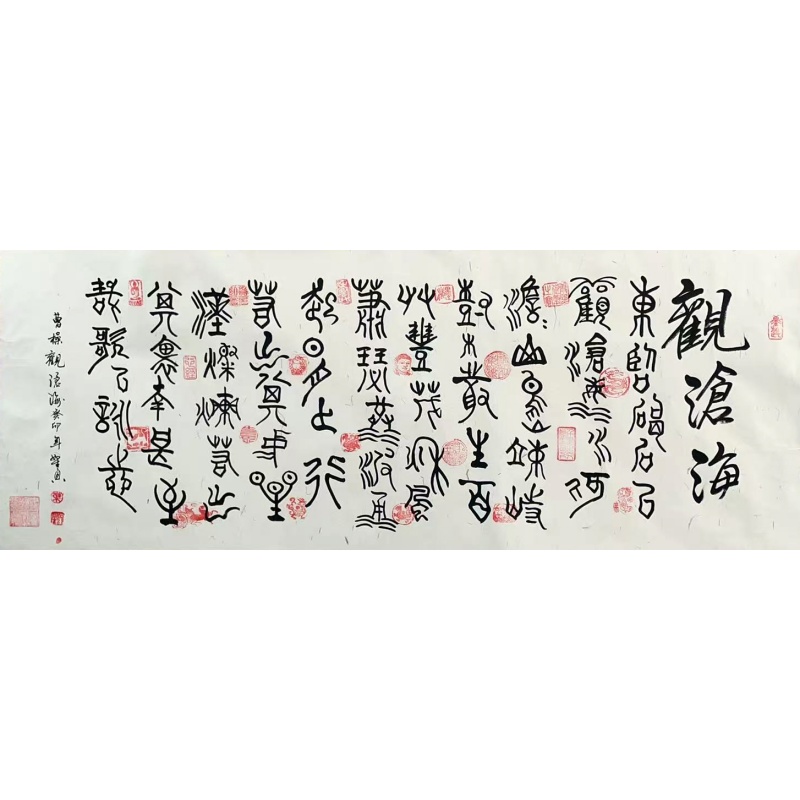 觀滄海
東臨碣石以
觀滄海水何
澹澹山島竦峙
樹木叢生百
艸豐茂秋風
蕭瑟洪波涌
起日月之行
若出其中星
漢燦爛若出
其裏幸甚至
哉歌以詠志
曹操觀滄海癸卯年